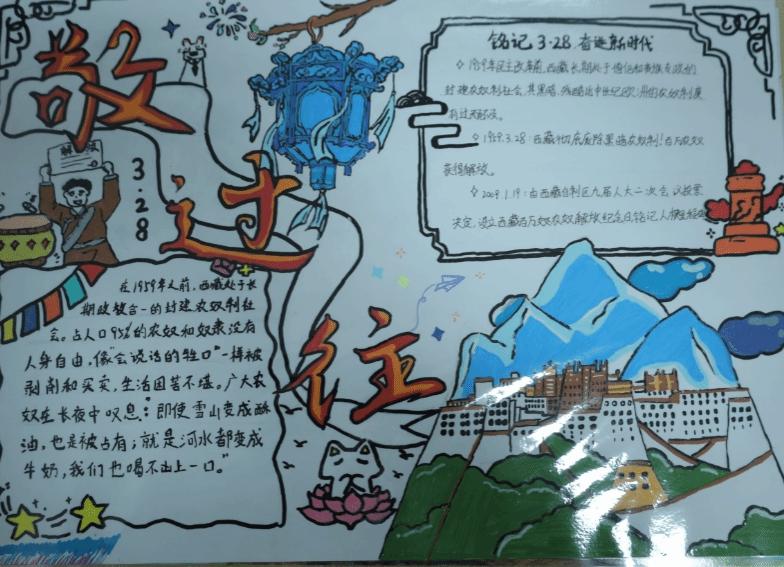 敬过往
解放
3.28
铭记3·28 奋进新时代
1959年民主改革前，西藏长期处于僧侣和贵族专政的
封建农奴制社会，其黑暗、残酷比中世纪欧洲的农奴制度
有过之而无不及。
1959.3.28：西藏彻底废除黑暗农奴制！百万农奴
获得解放。
2009.1.19：由西藏自治区九届人大二次会议投票
决定，设立西藏百万农奴解放纪念日，铭记人
在1959年以前，西藏处于长
期政教合一的封建农奴制社
会。占人口95%的农奴和奴隶没有
人身自由，像“会说话的牲口”一样被
剥削和买卖，生活困苦不堪。广大农
奴在长夜中叹息：“即使雪山变成酥
油，也是被占有；就是河水都变成
牛奶，我们也喝不上一口。”